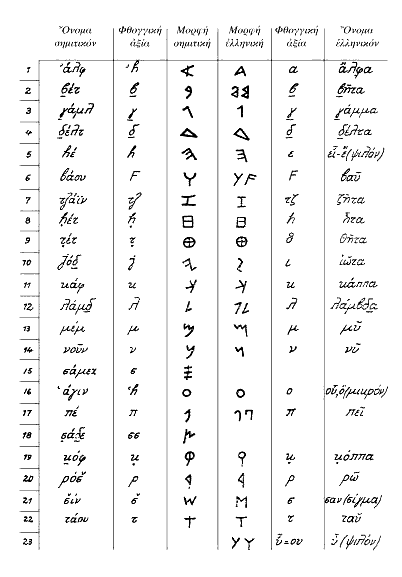 Ὄνομα σημιτικόν Φθογγική ἀξία Μορφή σημιτική Μορφή ἑλληνική Φθογγική ἀξία Ὄνομα ἑλληνικόν
1 ἄλφ ʾh 𐤀 Α α ἄλφα
2 β̱έτ β̱ β̱ β̱ῆτα
3 γ̱άμλ γ̱ 1 1 γ̱ γάμμα
4 δ̱έλτ δ̱ Δ Δ δ̱ δέλτα
5 hέ h ε εἶ-ἔ(ψιλόν)
6 βάου F Y YF F βαῦ
7 τζάϊν τζ I I τζ ζῆτα
8 ḥέτ ḥ h ἧτα
9 τ̣έτ τ̣ ⊕ ⊕ θ θῆτα
10 j ι ἰῶτα
11 κάφ κ κ κάππα
12 λάμδ̱ λ L λ λάμβδα
13 μέμ μ μ μῦ
14 νοῦν ν ν νῦ
15 σάμεκ σ
16 ʿάγιν ʿh O O ο οὖ,ὀ(μικρόν)
17 πέ π 1 π πεῖ
18 σσ
19 κ̣όφ κ̣ φ ϙ κ̣ κ̣όππα
20 ρ ρ ῥῶ
21 W M σ σαν(σίγμα)
22 τάου τ † T τ ταῦ
23 Y Y ῦ=ου ὖ(ψιλόν)